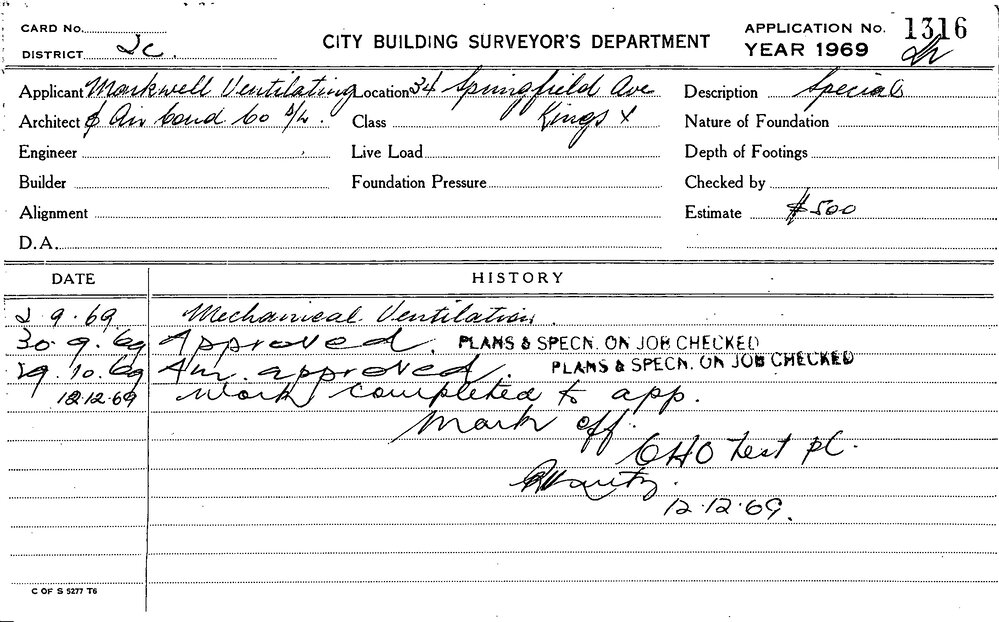 CARD No.
APPLICATION No. 1316
DISTRICT 2c.
CITY BUILDING SURVEYOR'S DEPARTMENT
YEAR 1969
Applicant Markwell Ventilating Location 34 Springfield Ave Description Special
Architect & Air Cond Co P/L. Class Kings X Nature of Foundation
Engineer Live Load Depth of Footings
Builder Foundation Pressure Checked by
Alignment Estimate $500
D.A.
DATE HISTORY
2.9.69 Mechanical Ventilation.
30.9.69 Approved. PLANS & SPECN. ON JOB CHECKED
29.10.69 Am. approved. PLANS & SPECN. ON JOB CHECKED
12.12.69 Work completed to app.
Mark off.
CHO test pl.
12.12.69.
C OF S 5277 T6